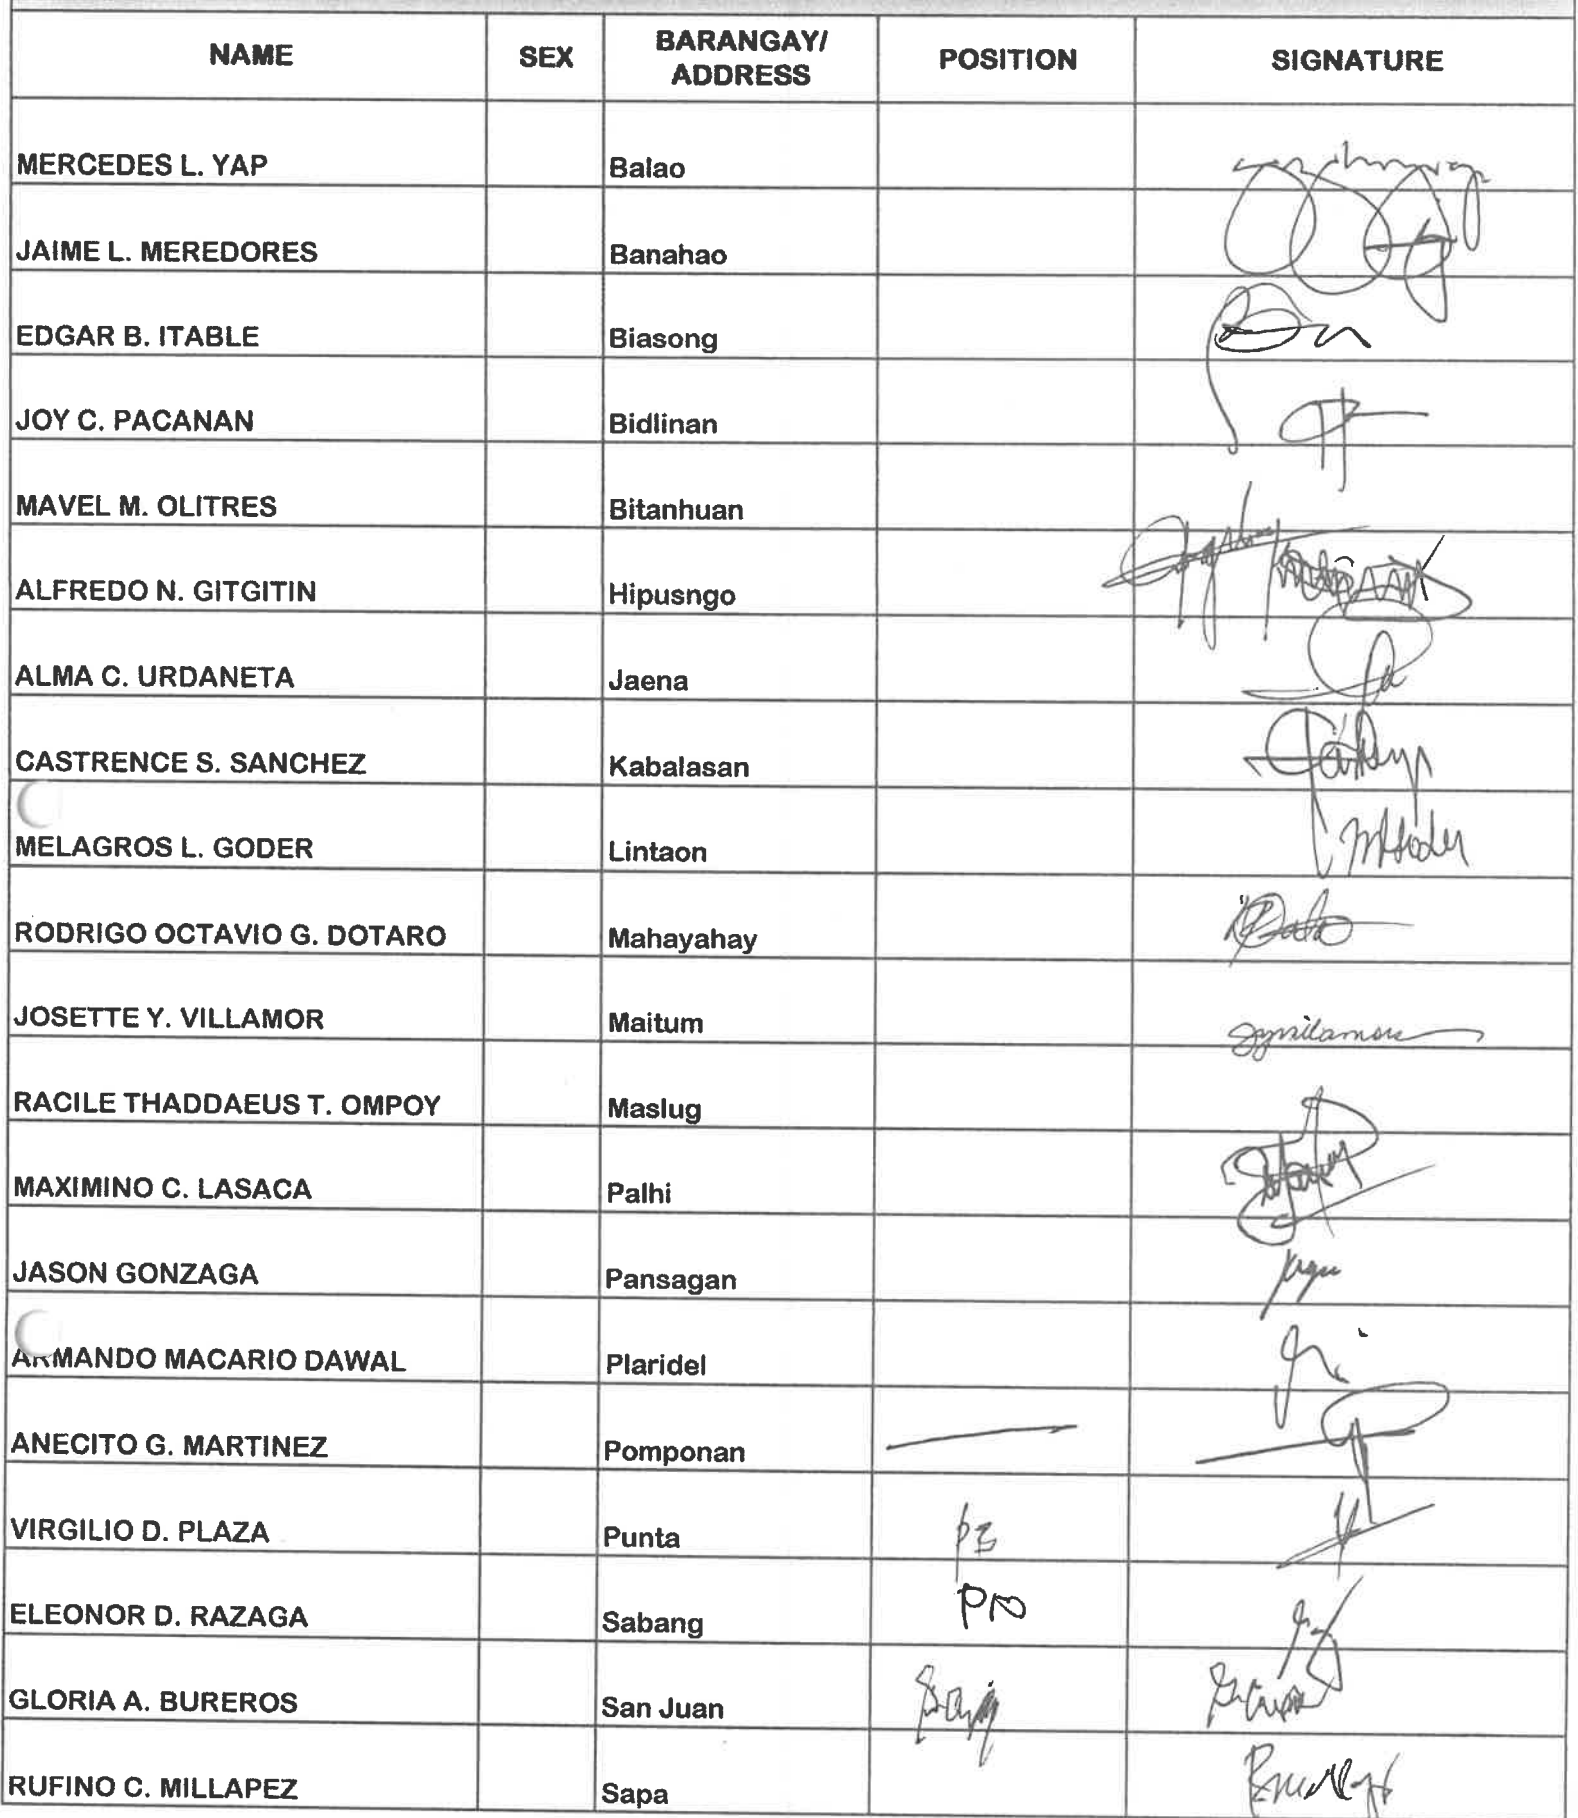 NAME SEX BARANGAY/ ADDRESS POSITION SIGNATURE
MERCEDES L. YAP Balao
JAIME L. MEREDORES Banahao
EDGAR B. ITABLE Biasong
JOY C. PACANAN Bidlinan
MAVEL M. OLITRES Bitanhuan
ALFREDO N. GITGITIN Hipusngo
ALMA C. URDANETA Jaena
CASTRENCE S. SANCHEZ Kabalasan
MELAGROS L. GODER Lintaon
RODRIGO OCTAVIO G. DOTARO Mahayahay
JOSETTE Y. VILLAMOR Maitum
RACILE THADDAEUS T. OMPOY Maslug
MAXIMINO C. LASACA Palhi
JASON GONZAGA Pansagan
ARMANDO MACARIO DAWAL Plaridel
ANECITO G. MARTINEZ Pomponan
VIRGILIO D. PLAZA Punta
ELEONOR D. RAZAGA Sabang
GLORIA A. BUREROS San Juan
RUFINO C. MILLAPEZ Sapa